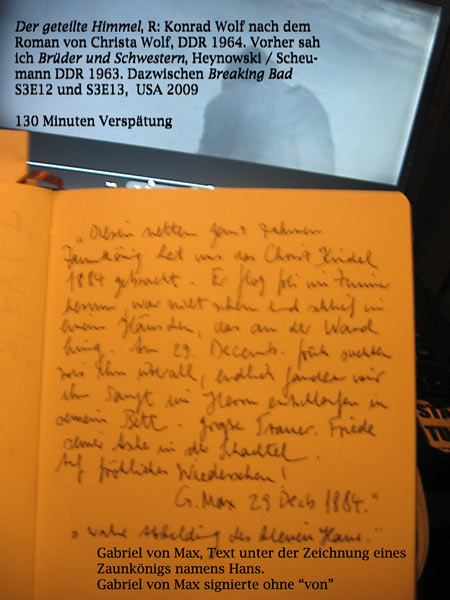 Der geteilte Himmel, R: Konrad Wolf nach dem
Roman von Christa Wolf, DDR 1964. Vorher sah
ich Brüder und Schwestern, Heynowski / Scheu-
mann DDR 1963. Dazwischen Breaking Bad
S3E12 und S3E13, USA 2009
130 Minuten Verspätung
„Diesen netten zahmen
Zaunkönig hat uns das Christ Kindel
1884 gebracht. Er flog frei im Zimmer
herum, war nicht scheu und schlief in
einem Häuschen, das an der Wand
hing. Am 29. Decemb. früh suchten
wir ihn überall, endlich fanden wir
ihn sanft im Herrn entschlafen in
seinem Bett. große Trauer. Friede
seiner Asche in der Schachtel.
Auf fröhliches Wiedersehen!
G. Max 29 Decb 1884."
wahre Abbildung des kleinen Hans."
Gabriel von Max, Text unter der Zeichnung eines
Zaunkönigs namens Hans.
Gabriel von Max signierte ohne “von”